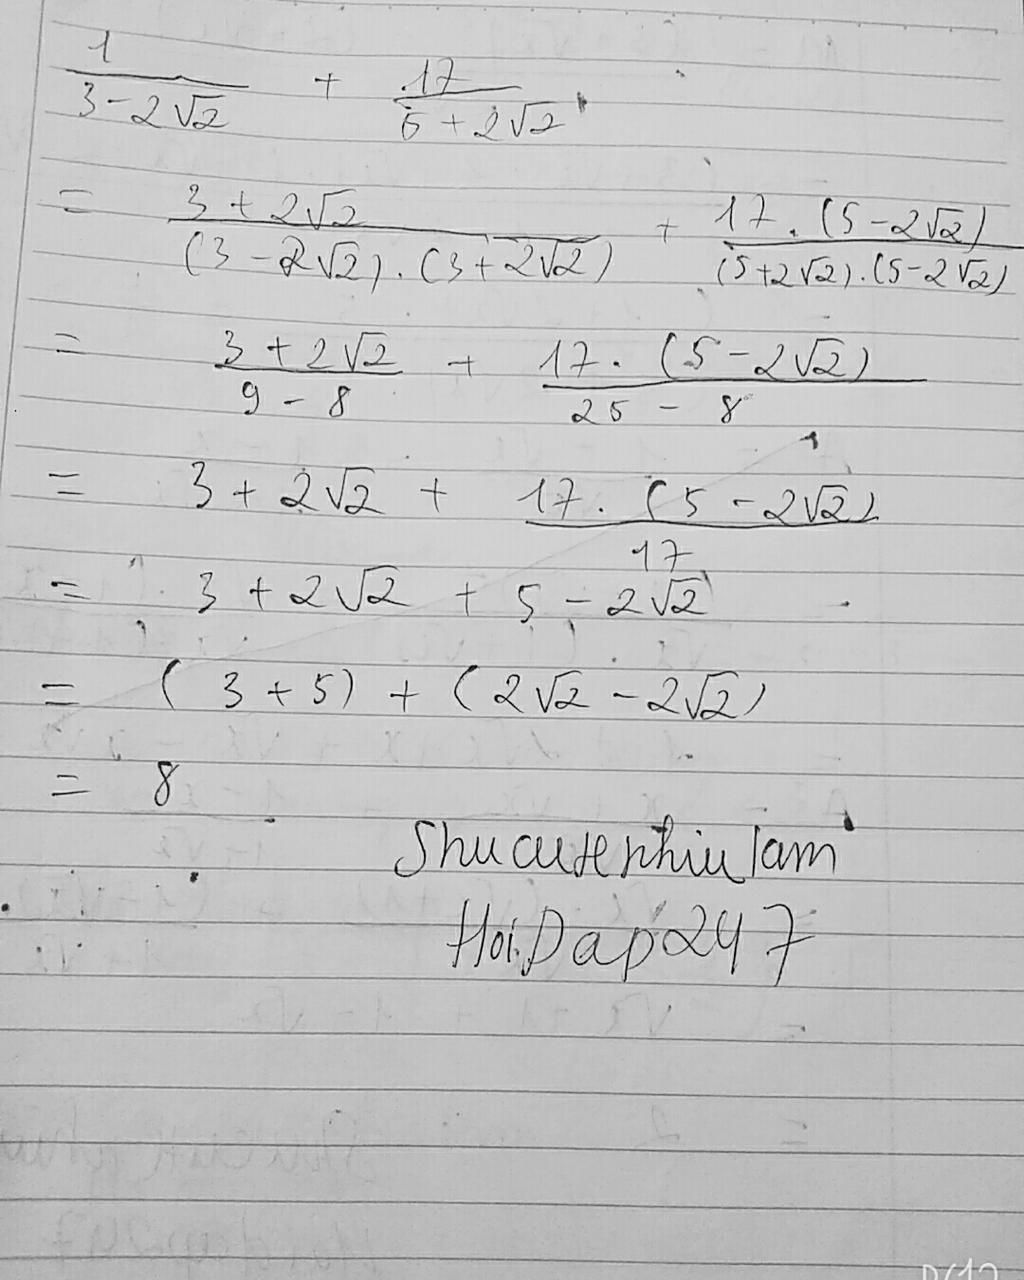 1/(3 - 2√2) + 17/(5 + 2√2)
= (3 + 2√2)/((3 - 2√2).(3 + 2√2)) + 17.(5 - 2√2)/((5 + 2√2).(5 - 2√2))
= (3 + 2√2)/(9 - 8) + 17.(5 - 2√2)/(25 - 8)
= 3 + 2√2 + 17.(5 - 2√2)/17
= 3 + 2√2 + 5 - 2√2
= (3 + 5) + (2√2 - 2√2)
= 8
Shucutenhiulam
HoiDap247